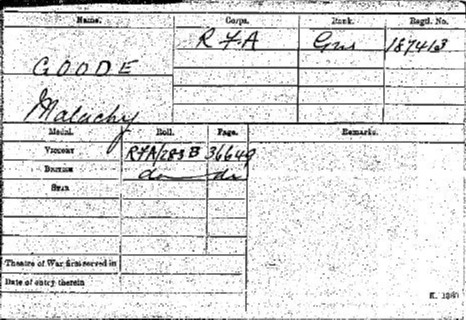 Name. Corps. Rank. Regtl. No.
R F A Gnr 187413
GOODE
Malachy
Medal. Roll. Page. Remarks.
VICTORY RFA/283 B 36649
BRITISH do do
STAR
Theatre of War first served in
Date of entry therein